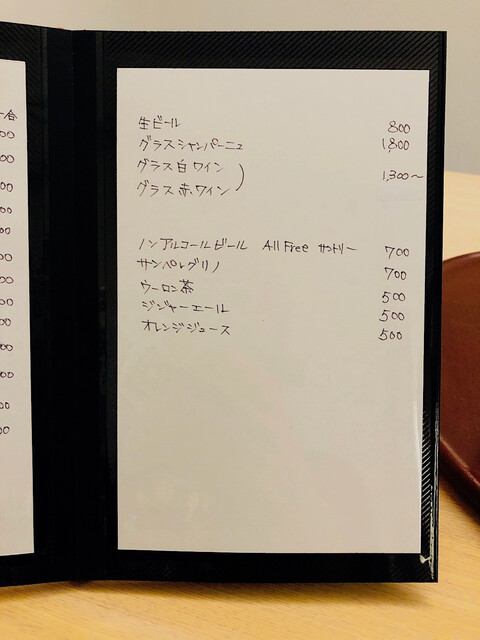 一合
00
00
00
00
00
00
00
00
00
00
00
00
00
生ビール 800
グラスシャンパーニュ 1,800
グラス白ワイン
1,300〜
グラス赤ワイン
ノンアルコールビール All Free サントリー 700
サンペレグリノ 700
ウーロン茶 500
ジンジャーエール 500
オレンジジュース 500